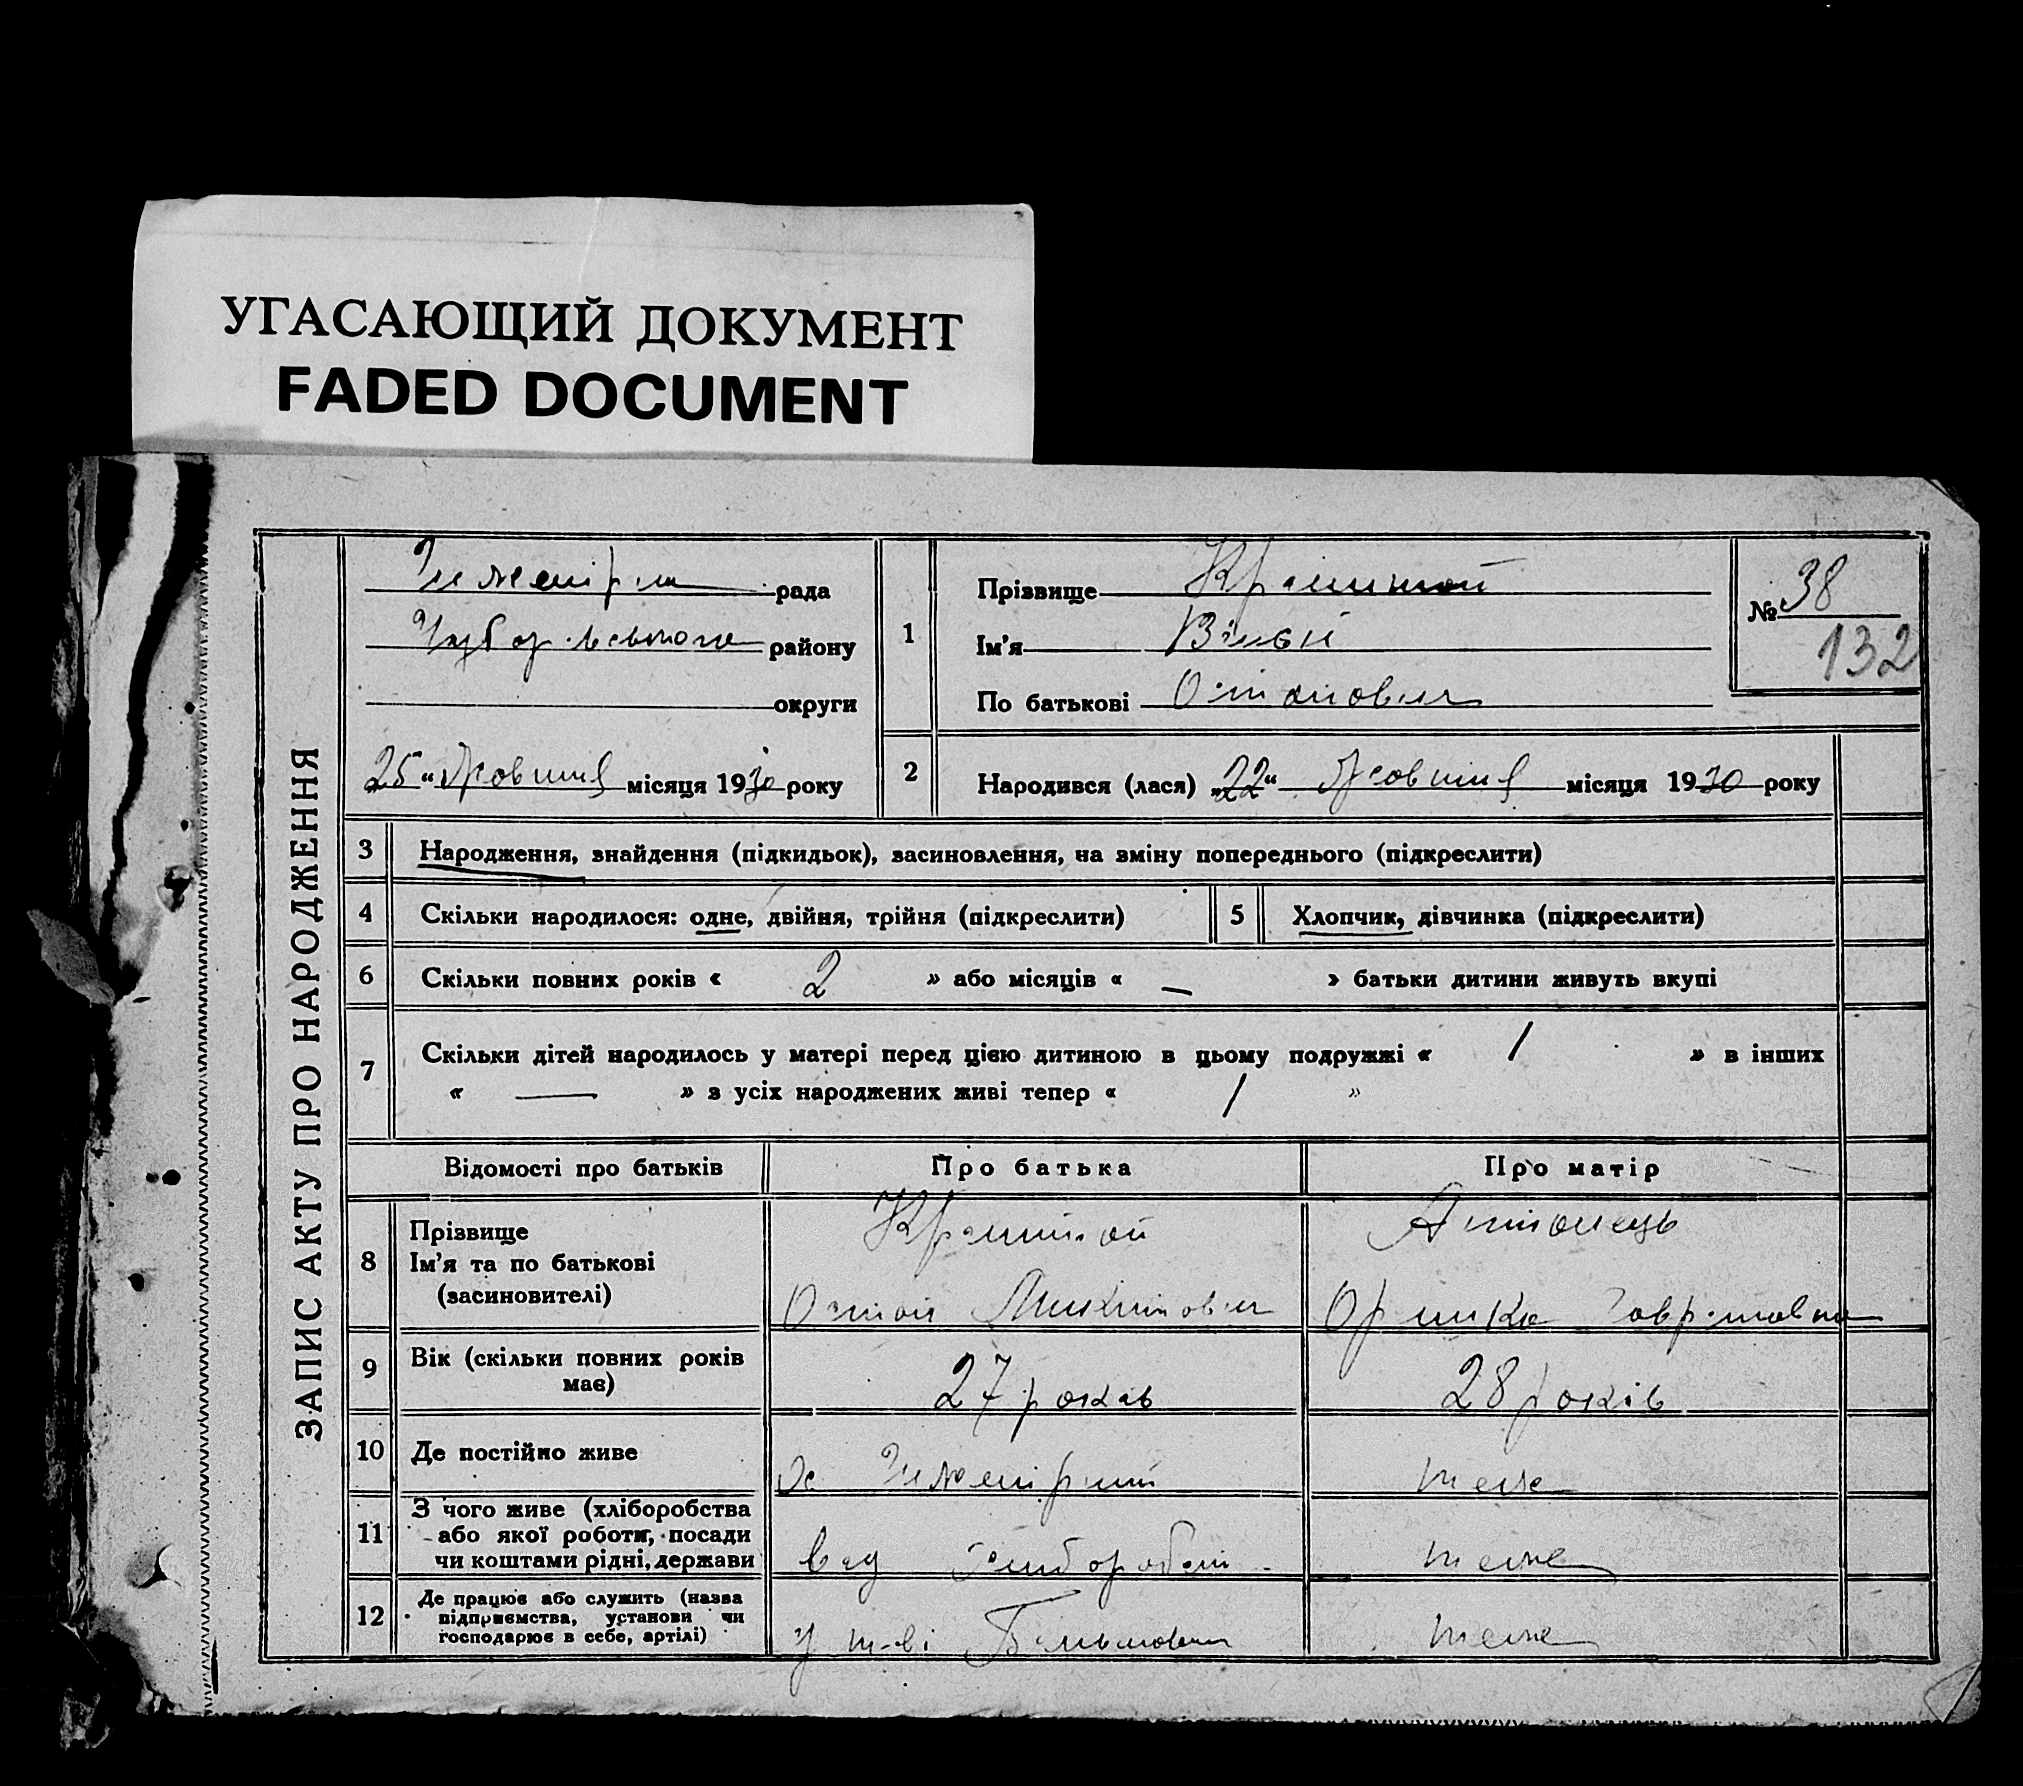 УГАСАЮЩИЙ ДОКУМЕНТ
FADED DOCUMENT
ЗАПИС АКТУ ПРО НАРОДЖЕННЯ
рада
району
округи
25 " Жовтня місяця 1930 року
1
Прізвище
Ім'я
По батькові Остапович
№ 38
132
2 Народився (лася) „22“ Жовтня місяця 1930 року
3 Народження, знайдення (підкидьок), засиновлення, на зміну попереднього (підкреслити)
4 Скільки народилося: одне, двійня, трійня (підкреслити)
5 Хлопчик, дівчинка (підкреслити)
6 Скільки повних років « 2 » або місяців « — » батьки дитини живуть вкупі
7 Скільки дітей народилось у матері перед цією дитиною в цьому подружжі « 1 » в інших
« — » з усіх народжених живі тепер « 1 »
Відомості про батьків Про батька Про матір
8 Прізвище
Ім'я та по батькові
(засиновителі)
Остап Микитович
Антонець
Оришка Гавриловна
9 Вік (скільки повних років
має)
27 років 28 років
10 Де постійно живе
теже
11 З чого живе (хліборобства
або якої роботи, посади
чи коштами рідні, держави
від хліборобст. теже
12 Де працює або служить (назва
підприємства, установи чи
господарює в себе, артілі)
у т-ві теже